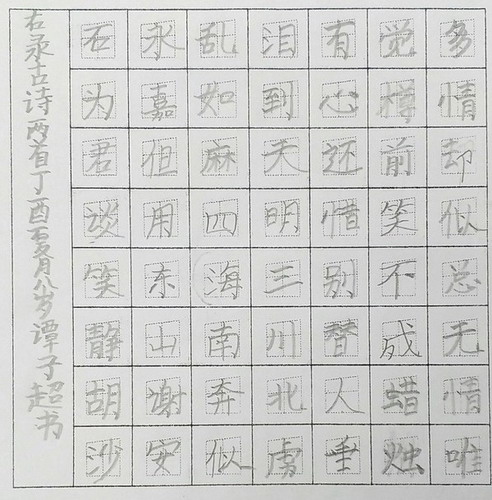 多情却似总无情唯
觉樽前笑不成蜡烛
有心还惜别替人垂
泪到天明三川北虏
乱如麻四海南奔似
永嘉但用东山谢安
石为君谈笑静胡沙
右录古诗两首丁酉月八岁谭子超书